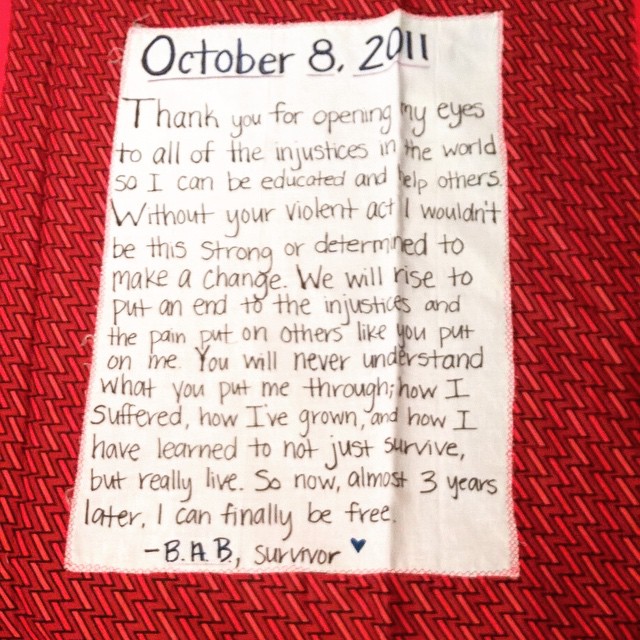 October 8, 2011
Thank you for opening my eyes
to all of the injustices in the world
so I can be educated and help others.
Without your violent act I wouldn't
be this strong or determined to
make a change. We will rise to
put an end to the injustices and
the pain put on others like you put
on me. You will never understand
what you put me through; how I
suffered, how I've grown, and how I
have learned to not just survive,
but really live. So now, almost 3 years
later, I can finally be free.
-B.A.B, survivor ♥